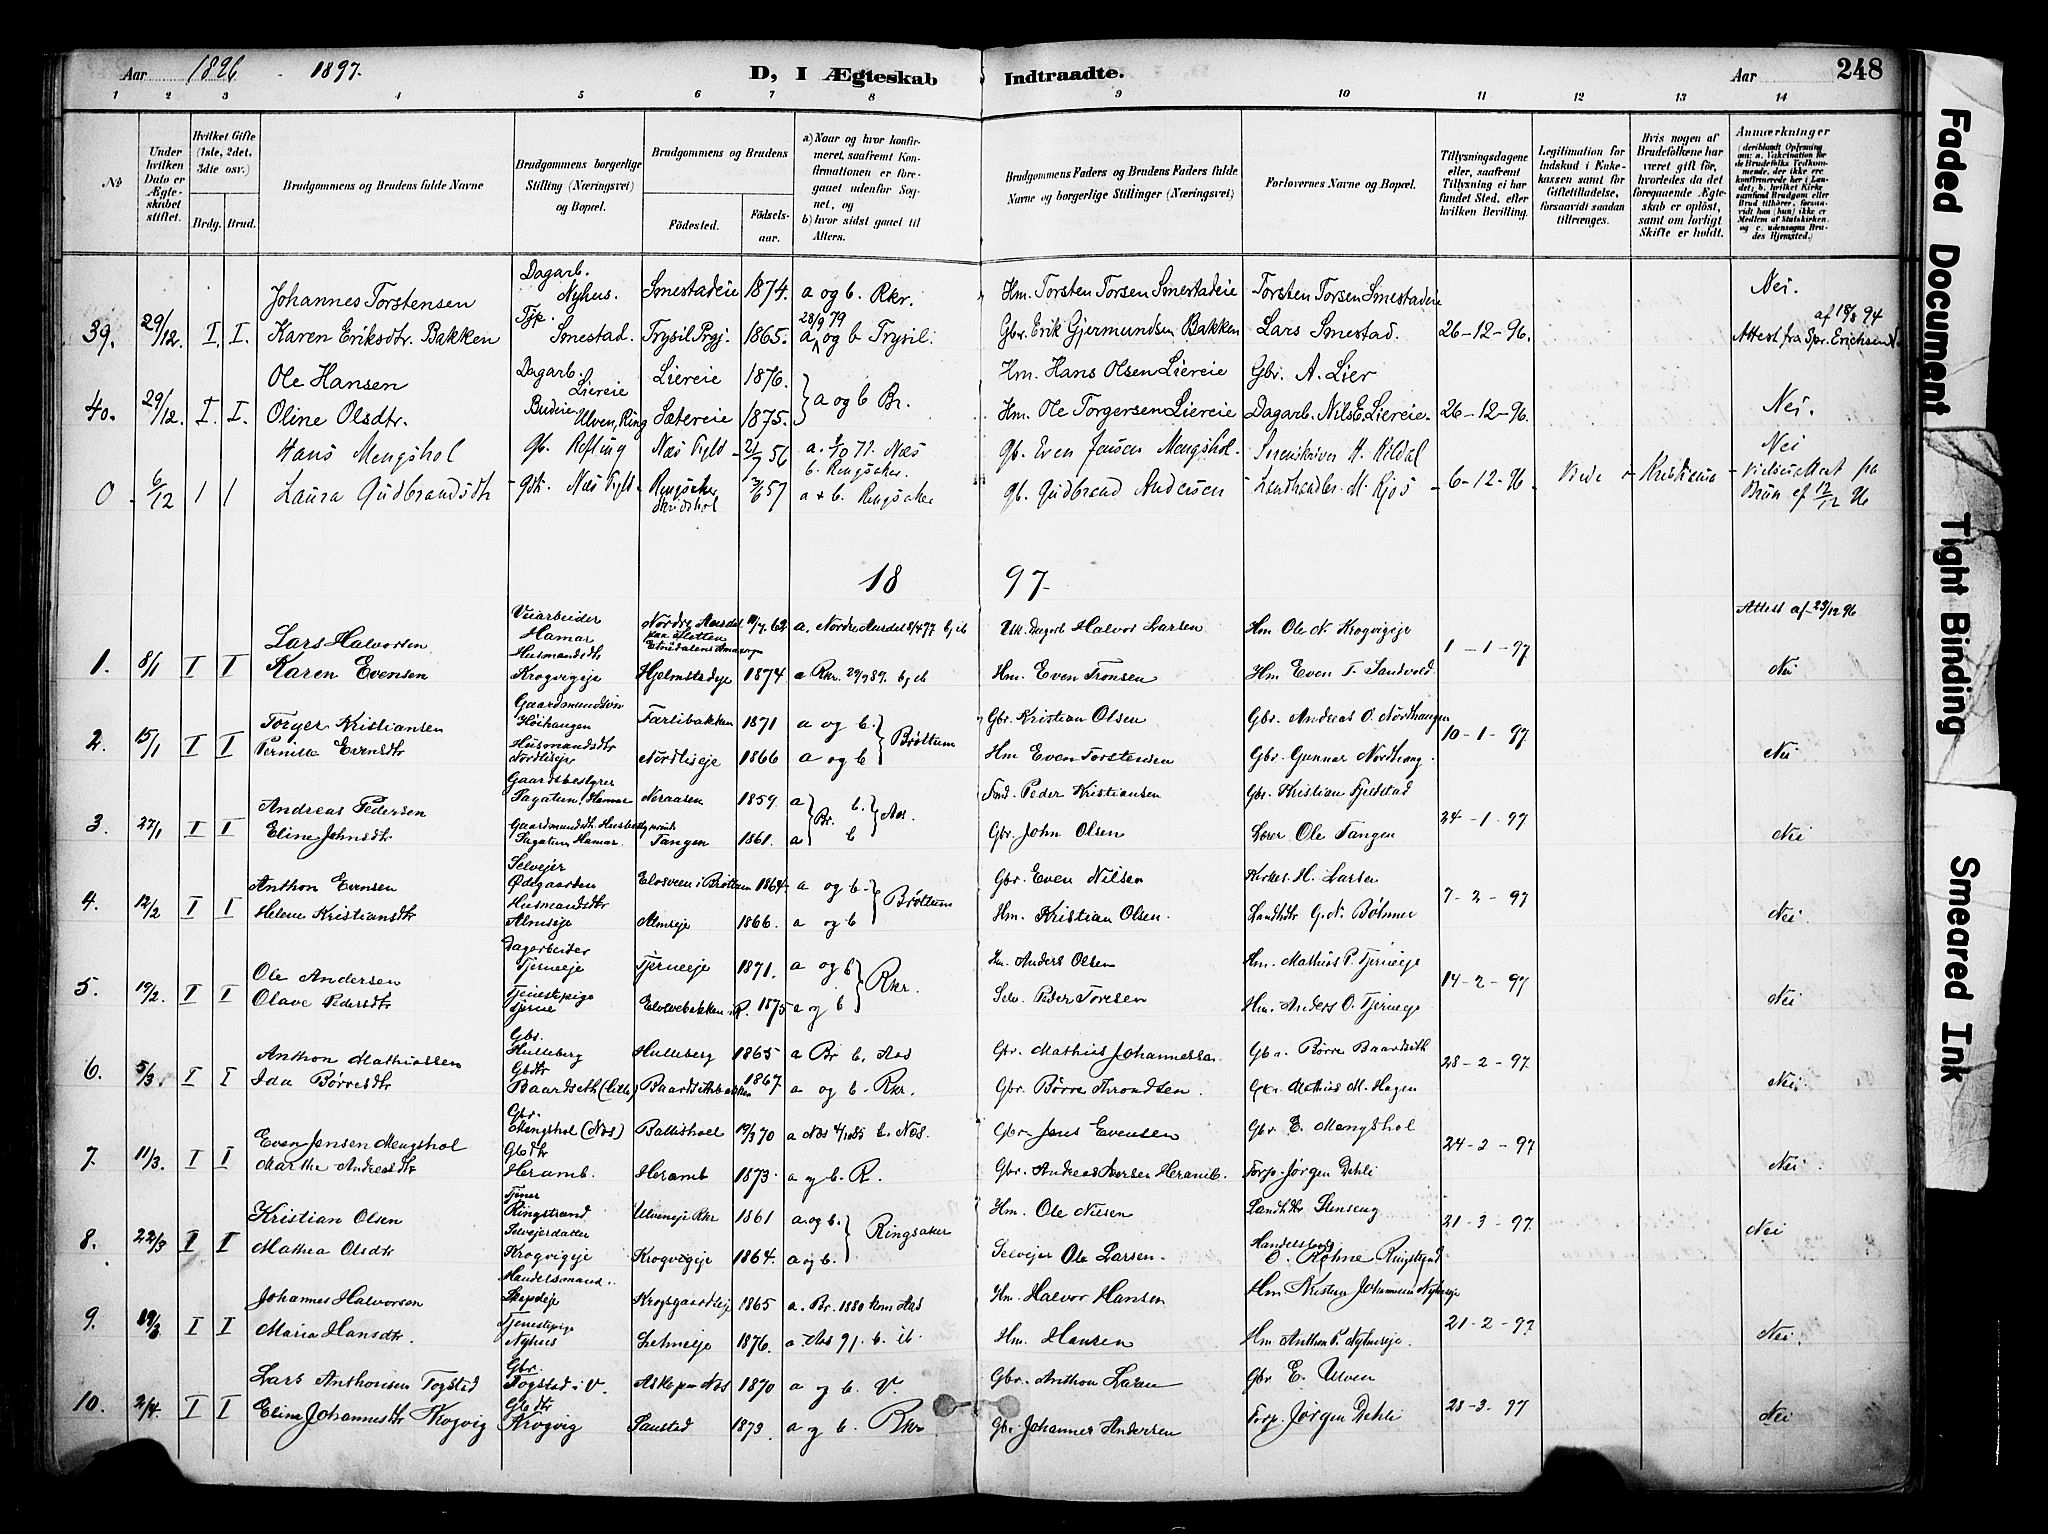 Aar 1896 - 1897. D, I Ægteskab Indtraadte. Aar 248
1 2 3 4 5 6 7 8 9 10 11 12 13 14
No
Under hvilken Dato er Ægteskabet stiftet.
Hvilket Gifte (1ste, 2det, 3die osv.)
Brdg. Brud.
Brudgommens og Brudens fulde Navne
Brudgommens borgerlige Stilling (Næringsvei) og Bopæl.
Brudgommens og Brudens
Fødested. Fødselsaar.
a) Naar og hvor konfirmeret, saafremt Konfirmationen er foregaaet udenfor Sognet, og
b) hvor sidst gaaet til Alters.
Brudgommens Faders og Brudens Faders fulde Navne og borgerlige Stillinger (Næringsvei)
Forlovernes Navne og Bopæl.
Tillysningsdagene eller, saafremt Tillysning ei har fundet Sted, efter hvilken Bevilling.
Legitimation for Indskud i Enkekassen samt for Giftetilladelse, forsaavidt saadan tiltrænges.
Hvis nogen af Brudefolkene har været gift før, hvorledes da det foregaaende Ægteskab er opløst, samt om lovligt Skifte er holdt.
Anmærkninger (deriblandt Oplysning om: a. Vakcination for de Brudefolks Vedkommende, der ikke ere konfirmerede her i Landet; b. hvilket Kirkesamfund Brudgom eller Brud tilhører, forsaavidt han (hun) ikke er Medlem af Statskirken. og c. udensogns Brudes Hjemsted.)
Johannes Torstensen Dagarb. Nyhus. Smestadeie 1874. a og b. Rkr. Hm. Torsten Torsen Smestadeie Torsten Torsen Smestadeie Nei.
39. 29/12. I. I. Karen Eriksdtr. Bakken Tjp. Smestad. Trysil Prgj. 1865. 28/9 79 a og b Trysil. Gbr. Erik Gjermundsen Bakken Lars Smestad. 26-12-96. Attest fra Spr. Erichsen af 18/8 94
Ole Hansen Dagarb. Liereie Liereie 1876. Hm. Hans Olsen Liereie Gbr. A. Lier
40. 29/12. I. I. Oline Olsdtr. Budeie Ulven, Ring Sætereie 1875. a og b Br. Hm. Ole Torgersen Liereie Dagarb. Nils E. Liereie. 26-12-96. Nei.
Hans Mengshol gb. Refling Næs 56 a. 71. Næs b. Ringsaker. gb. Even Jensen Mengshol. Sorenskriver H. Kildal Nei
0 6/12 1 1 Laura Gudbrandsdtr gdtr. Næs Ringsaker 57 a + b. Ringsaker gb. Gudbrand Andersen Landhandler M. Kjos 6-12-96 Kristiania Vielsesattest fra Brun af 12/12 96
1897.
Lars Halvorsen Veiarbeider Hamar Nordre Aurdal 62 a. Nordre Aurdal 8/4 77 b, ib Halvor Larsen Hm Ole N. Krogvigeje Attest af 23/12 96
1. 8/1 I I Karen Evensen Husmandsdtr Krogvigeje Hjelmstadeje 1874 a Rkr. 29/9 89. b, ib Hm. Even Tronsen Hm Even T. Sandvold 1-1-97 Nei
Torger Kristiansen Gaardmandssøn Høihaugen Færlibakken 1871 a og b. Gbr. Kristian Olsen Gbr. Andreas O. Nordhaugen
2. 15/1 I I Pernille Evensdtr Husmandsdtr Nordlieje Nordlieje 1866 a og b Brøttum Hm Even Torstensen Gbr. Gunnar Nordhaug. 10-1-97 Nei
Andreas Pedersen Gaardsbestyrer Sagatun, Hamar Neraasen 1859. a b. Peder Kristiansen Gbr. Kristian Fjelstad
3. 27/1 I I Eline Johnsdtr Sagatun Hamar. Tangen 1861. a Br. b Aas. Gbr. John Olsen Lærer Ole Tangen 24-1-97 Nei
Anthon Evensen Selvejer Ødegaarden Elvsveen i Brøttum 1864. a og b. Gbr. Even Nilsen Kirkes. H. Larsen
4. 12/2 I I Helene Kristiansdtr Husmandsdtr Almseje Almseje 1866. a og b Brøttum Hm. Kristian Olsen. Landhdtr G. N. Bøhmer 7-2-97 Nei
Ole Andersen Dagarbeider Tjerneeje Tjerneeje 1871. a og b Hm. Anders Olsen Hm. Mathias P. Tjerneeje
5. 19/2. I I Olave Pedersdtr Tjenestepige Tjerne Elvsvebakken R. 1875 a og b Rkr. Selv. Peder Toresen Hm. Anders O. Tjerneeje 14-2-97 Nei
Anthon Mathiassen Gbs. Hulleberg Hulleberg 1865 a Br b. Aas Gbr. Mathias Johannessen Gbr. Børre Baardseth
6. 5/3. I I Ida Børresdtr Gbdtr Baardseth (Lille) Baardsethbakken 1867. a og b. Rkr. Gbr. Børre Throndsen. Gbr. Mathias M. Hagen 28-2-97. Nei
Even Jensen Mengshol Gbr. Mengshol (Næs) Ballishoel 19/3 70 a Næs b. Næs. Gbr Jens Evensen Gbr E. Mengshol
7. 11/3. I I Marthe Andreasdtr Gbdtr Heramb. Heramb 1873. a og b. R. Gbr. Andreas Iversen Heramb. Forp. Jørgen Dehli 24-2-97 Nei
Kristian Olsen Tjener Ringstrand Ulveneje Rkr 1861 a og b. Hm. Ole Nilsen Landhdtr Stenseng
8. 22/3 I I Mathea Olsdtr Selvejerdatter Krogvigeje Krogvigeje 1864. a og b. Ringsaker Selvejer Ole Larsen. Handelsbetj. O. Røhne Ringstrand 21-3-97. Nei
Johannes Halvorsen Handelsmand Skapdeje Krogsgaardseje 1865 a. Br. 1880 kom Aas Hm. Halvor Hansen Hm Kristian Johannesen Nyhuseje
9. 19/3 I I Maria Hansdtr. Tjenestepige Nyhus 1876. a Næs 91. b. ib. Hm. Hansen Hm Anthon P. Nyhuseje. 21-2-97. Nei.
Lars Anthonsen Togstad Gbr. Togstad i V. 1870 a og b. V. Gbr. Anthon Larsen Gbr E. Ulven
10. 2/4. I I Eline Johannesdtr Krogvig Gbdtr Krogvig Saustad 1873 a og b. Rkr Gbr. Johannes Andersen Forp. Jørgen Dehli 28-3-97 Nei
Faded Document
Tight Binding
Smeared Ink